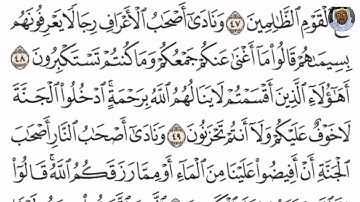 ٱلْقَوْمِ ٱلظَّٰلِمِينَ ٤٧ وَنَادَىٰٓ أَصْحَٰبُ ٱلْأَعْرَافِ رِجَالًا يَعْرِفُونَهُم
بِسِيمَىٰهُمْ قَالُوا۟ مَآ أَغْنَىٰ عَنكُمْ جَمْعُكُمْ وَمَا كُنتُمْ تَسْتَكْبِرُونَ ٤٨
أَهَٰٓؤُلَآءِ ٱلَّذِينَ أَقْسَمْتُمْ لَا يَنَالُهُمُ ٱللَّهُ بِرَحْمَةٍ ٱدْخُلُوا۟ ٱلْجَنَّةَ
لَا خَوْفٌ عَلَيْكُمْ وَلَآ أَنتُمْ تَحْزَنُونَ ٤٩ وَنَادَىٰٓ أَصْحَٰبُ ٱلنَّارِ أَصْحَٰبَ
ٱلْجَنَّةِ أَنْ أَفِيضُوا۟ عَلَيْنَا مِنَ ٱلْمَآءِ أَوْ مِمَّا رَزَقَكُمُ ٱللَّهُ قَالُوٓا۟